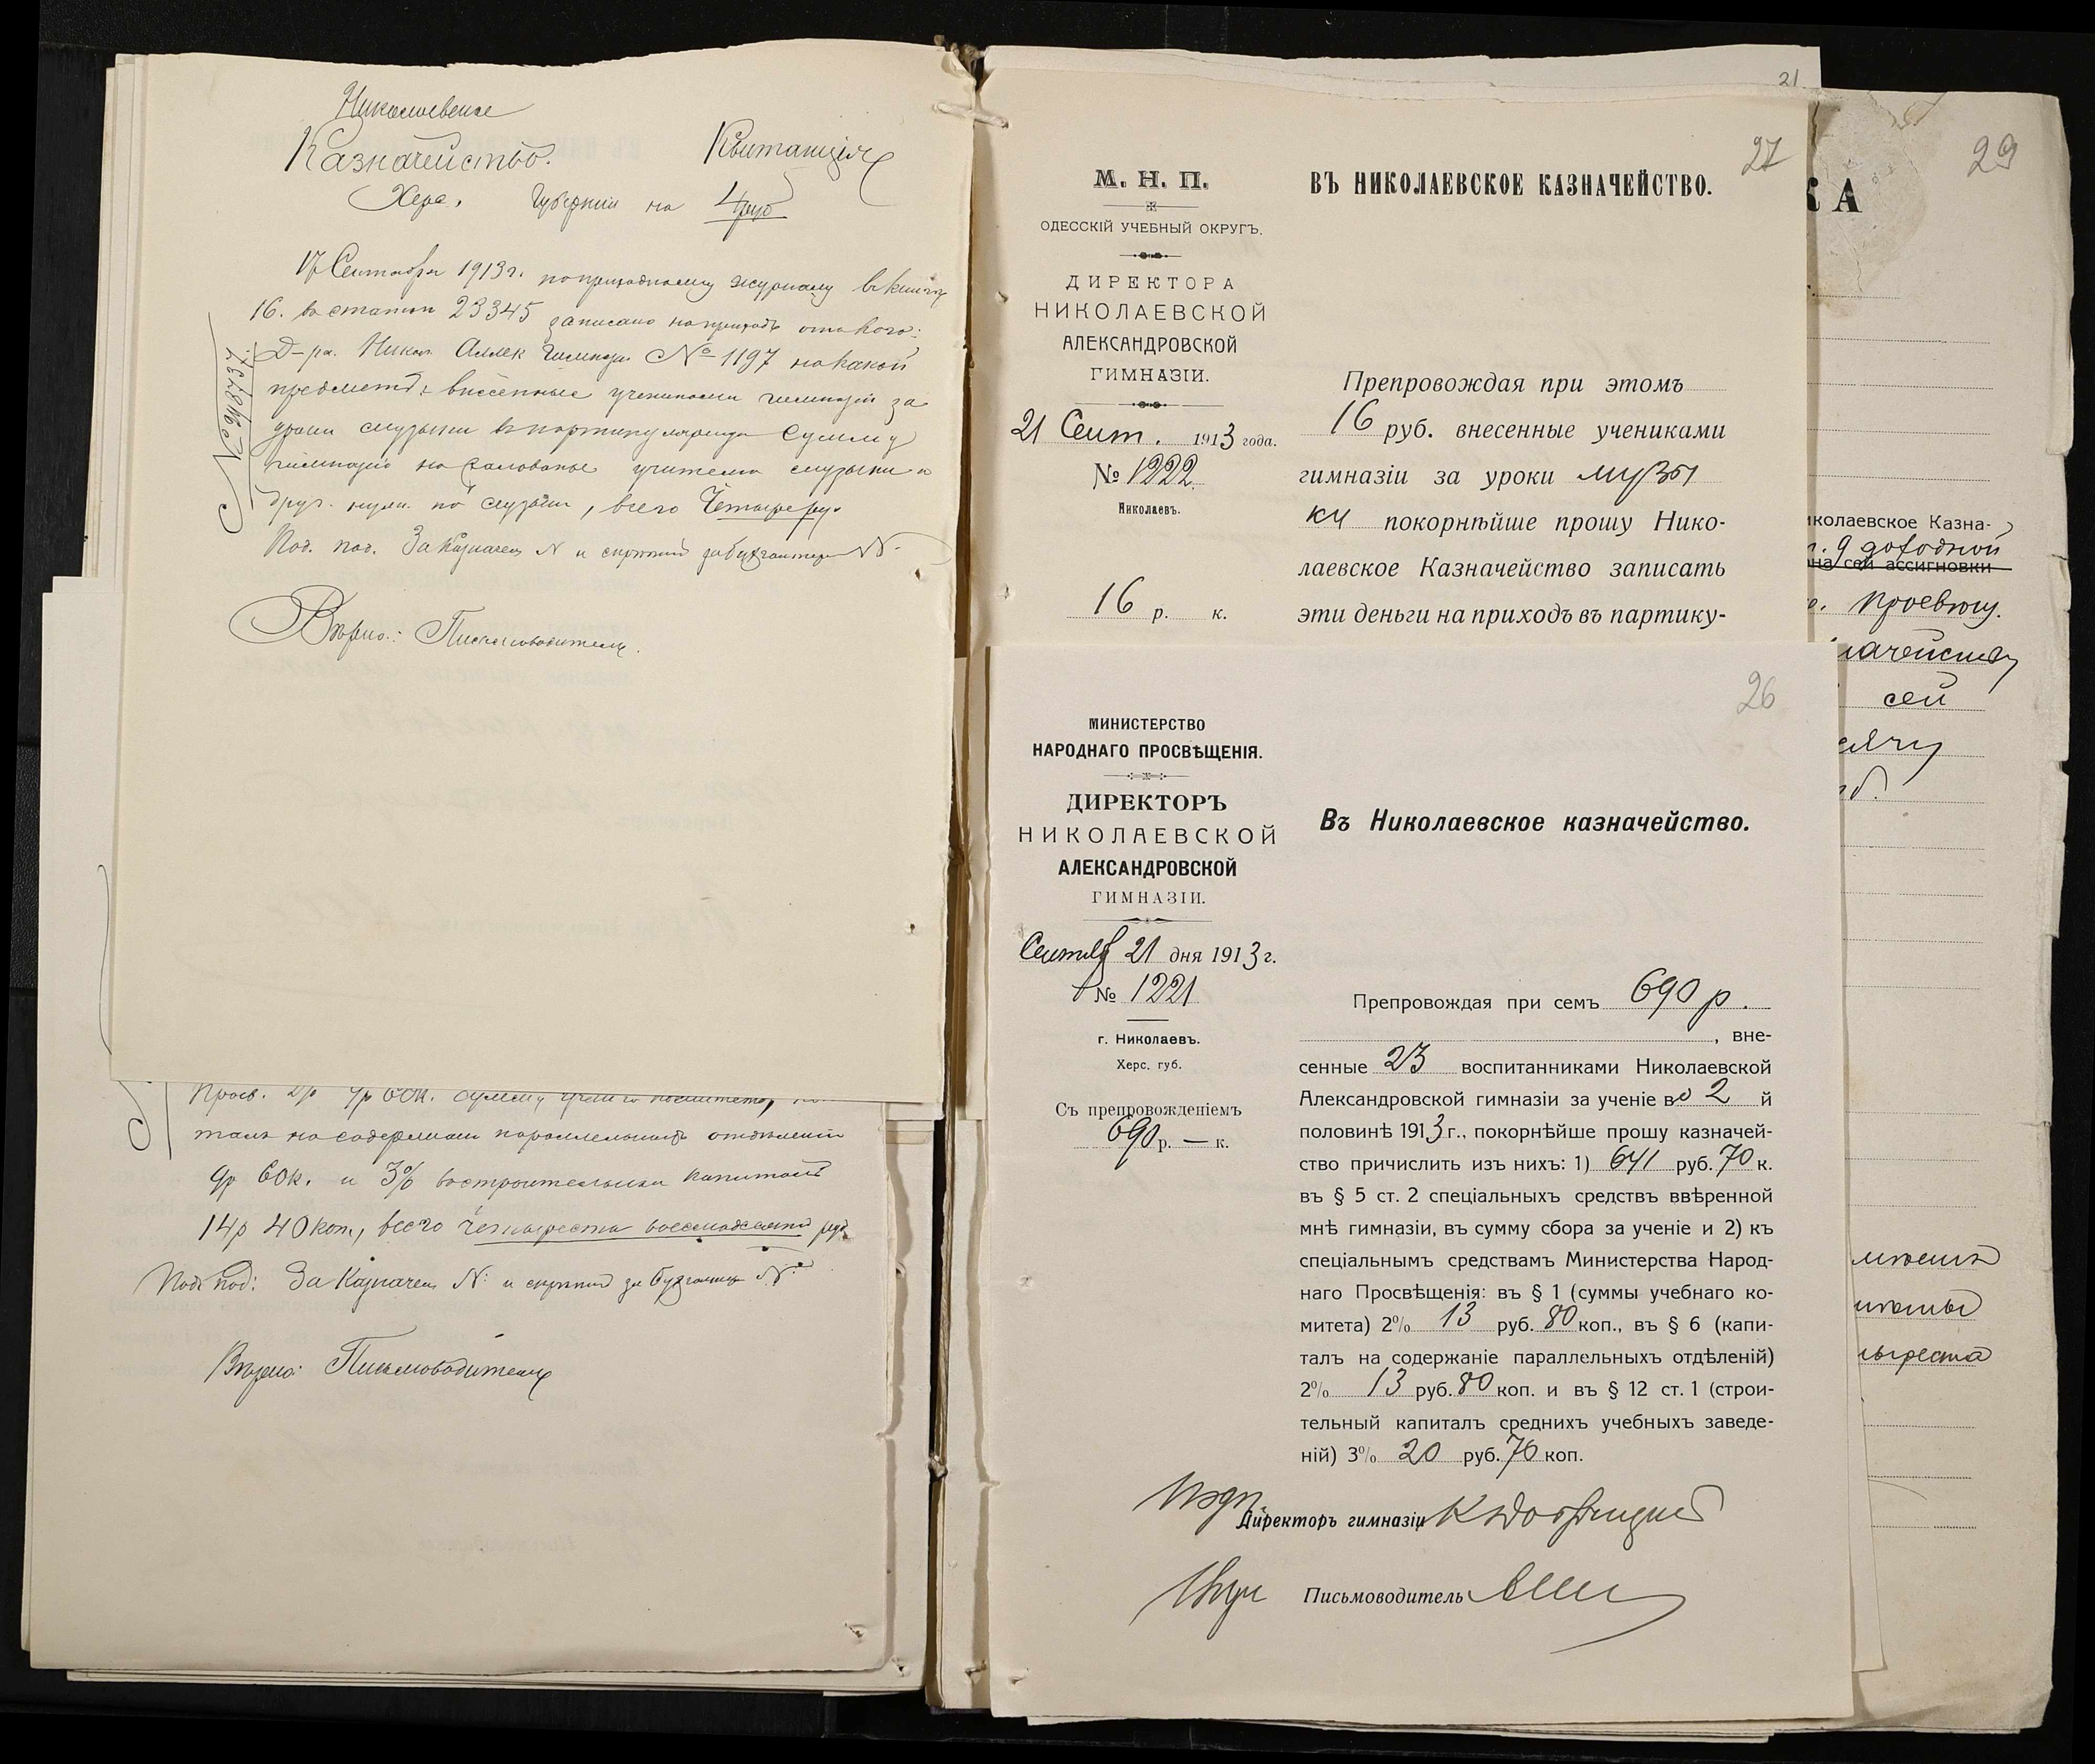 Николаевское
Казначейство.
Квитанція
Херс. Губерніи на 4 руб
17 Сентября 1913 г. по приходному журналу въ книгѣ
16. въ статьи 23345 записано на приходъ отъ кого:
Д-ра. Никол Алек Гимназіи № 1197 на какой
предметъ: внесенные учениками гимназіи за
уроки музыки въ партикулярную сумму
гимназіи на жалованье учителю музыки и
друг. нужд. по музыкѣ, всего Четыре ру.
Под. под. За Казначея N и скрѣпилъ за бухгалтера N.
Вѣрно: Письмоводитель
№
Просв. 2% 9р 60к. сумму учен го комитета,
талъ на содержаніе параллельныхъ отдѣленій
9р 60к. и 3% въ строительный капиталъ
14р 40 коп, всего четыреста восемьдесятъ руб.
Под. под: За Казначея N: и скрѣпилъ за Бухгалтера N.
Вѣрно: Письмоводитель
21
27
М. Н. П.
ОДЕССКІЙ УЧЕБНЫЙ ОКРУГЪ.
ДИРЕКТОРА
НИКОЛАЕВСКОЙ
АЛЕКСАНДРОВСКОЙ
ГИМНАЗІИ.
21 Сент. 1913 года.
№ 1222
Николаевъ.
16 р. к.
ВЪ НИКОЛАЕВСКОЕ КАЗНАЧЕЙСТВО.
Препровождая при этомъ
16 руб. внесенные учениками
гимназіи за уроки музы
ки покорнѣйше прошу Нико-
лаевское Казначейство записать
эти деньги на приходъ въ партику-
26
МИНИСТЕРСТВО
НАРОДНАГО ПРОСВѢЩЕНІЯ.
ДИРЕКТОРЪ
НИКОЛАЕВСКОЙ
АЛЕКСАНДРОВСКОЙ
ГИМНАЗІИ.
Сентяб 21 дня 1913 г.
№ 1221
г. Николаевъ.
Херс. губ.
Съ препровожденіемъ
690 р. — к.
Въ Николаевское казначейство.
Препровождая при семъ 690 р.
, вне-
сенные 23 воспитанниками Николаевской
Александровской гимназіи за ученіе во 2 й
половинѣ 1913 г., покорнѣйше прошу казначей-
ство причислить изъ нихъ: 1) 641 руб. 70 к.
въ § 5 ст. 2 спеціальныхъ средствъ ввѣренной
мнѣ гимназіи, въ сумму сбора за ученіе и 2) къ
спеціальнымъ средствамъ Министерства Народ-
наго Просвѣщенія: въ § 1 (суммы учебнаго ко-
митета) 2% 13 руб. 80 коп., въ § 6 (капи-
талъ на содержаніе параллельныхъ отдѣленій)
2% 13 руб. 80 коп. и въ § 12 ст. 1 (строи-
тельный капиталъ среднихъ учебныхъ заведе-
ній) 3% 20 руб. 70 коп.
Директоръ гимназіи
Письмоводитель
29
КА
иколаевское Казна-
. 9 доходной
на сей ассигновки
начейству
сей
сячу